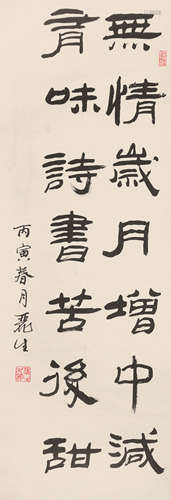 無情歲月增中減
有味詩書苦後甜
丙寅春月麗生